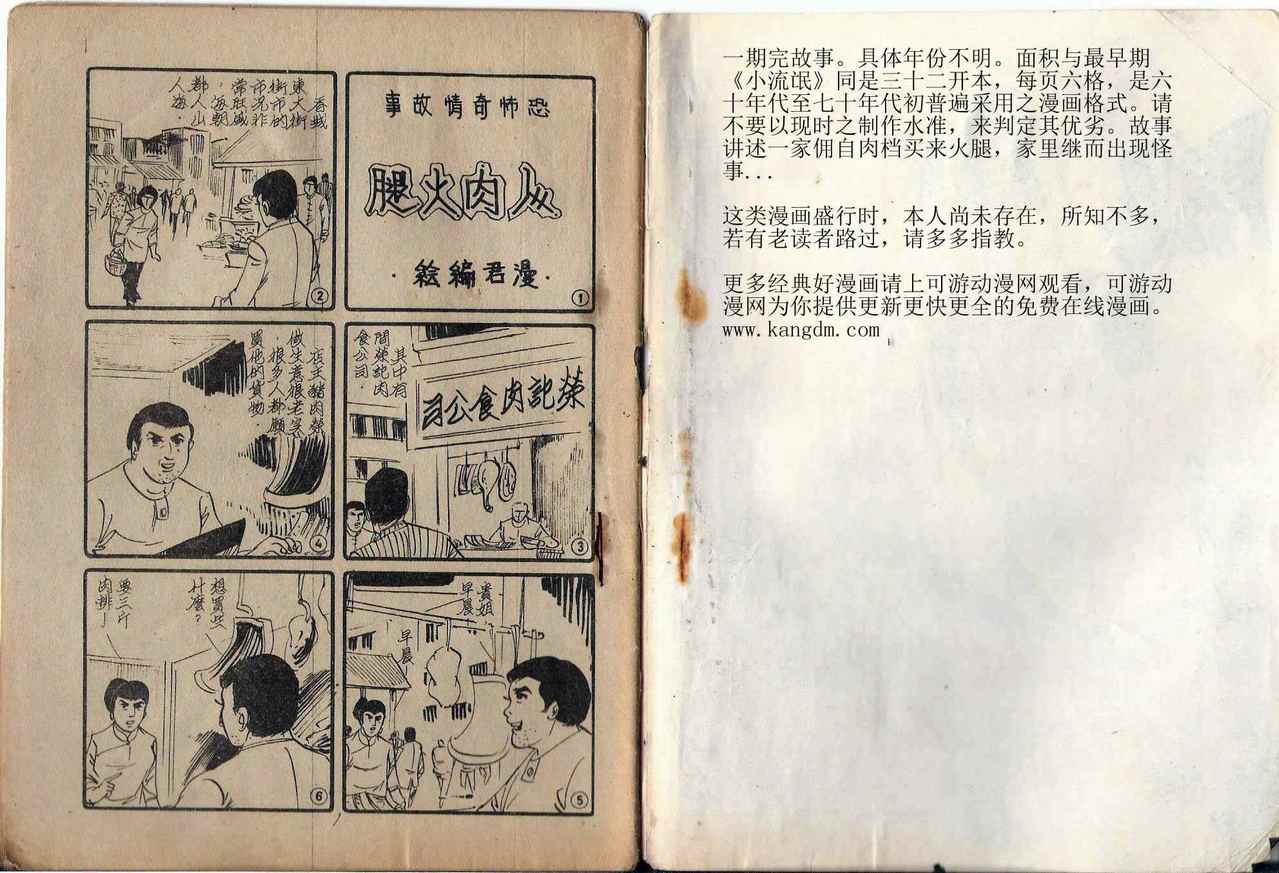 恐怖奇情故事
人肉火腿
·漫君編絵·
①
香城
東大街
街市的
市況非
常旺盛
，每朝
都人山
人海．
②
其中有
間榮記肉
食公司．
榮記肉食公司
③
店主豬肉榮
做生意很老實
，很多人都顧
買他的貨物．
④
貴姐
早晨
早晨
⑤
想買些
什麼？
要三斤
肉排
⑥
一期完故事。具体年份不明。面积与最早期
《小流氓》同是三十二开本，每页六格，是六
十年代至七十年代初普遍采用之漫画格式。请
不要以现时之制作水准，来判定其优劣。故事
讲述一家佣自肉档买来火腿，家里继而出现怪
事...
这类漫画盛行时，本人尚未存在，所知不多，
若有老读者路过，请多多指教。
更多经典好漫画请上可游动漫网观看，可游动
漫网为你提供更新更快更全的免费在线漫画。
www.kangdm.com